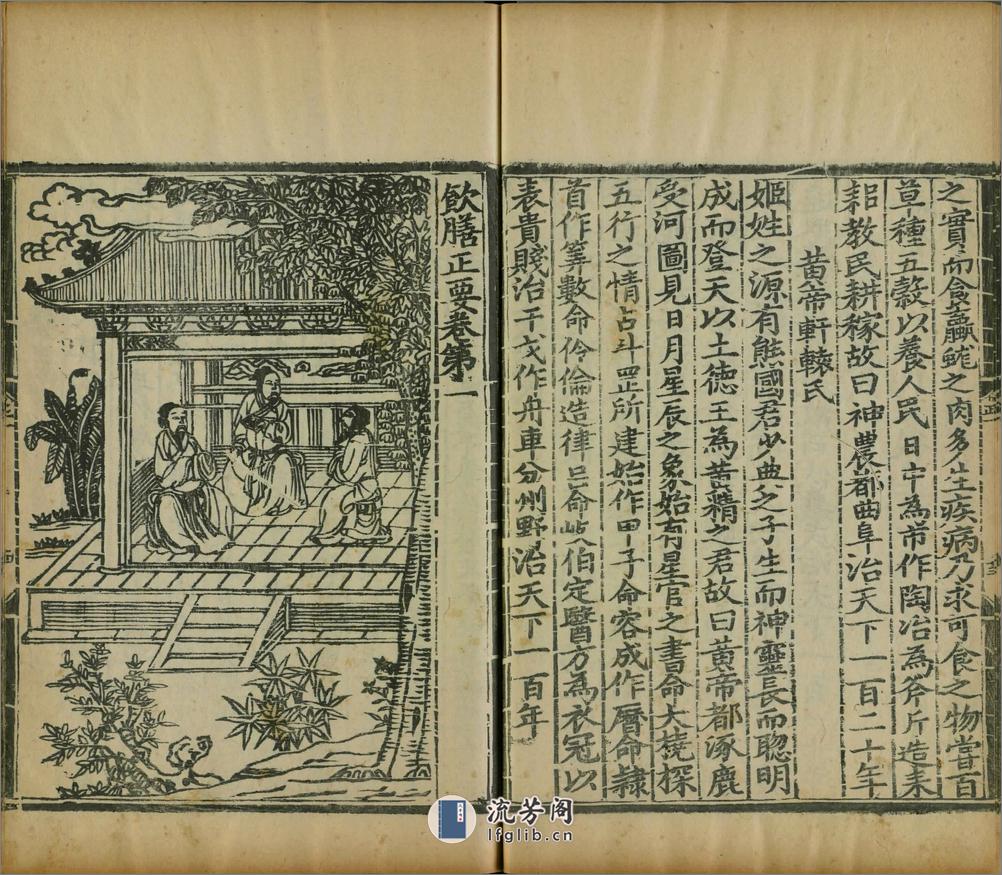 之實而食蠃蛖之肉多生疾病乃求可食之物嘗百
草種五穀以養人民日中為市作陶冶為斧斤造耒
耜教民耕稼故曰神農都曲阜治天下一百二十年
黄帝軒轅氏
姬姓之源有熊國君少典之子生而神靈長而聰明
成而登天以土德王為黃精之君故曰黃帝都涿鹿
受河圖見日月星辰之象始有星官之書命大撓探
五行之情占斗罡所建始作甲子命容成作曆命隸
首作筭數命伶倫造律呂命岐伯定醫方為衣冠以
表貴賤治干戈作舟車分州野治天下一百年
飲膳正要卷第一
流芳阁
lfglib.cn